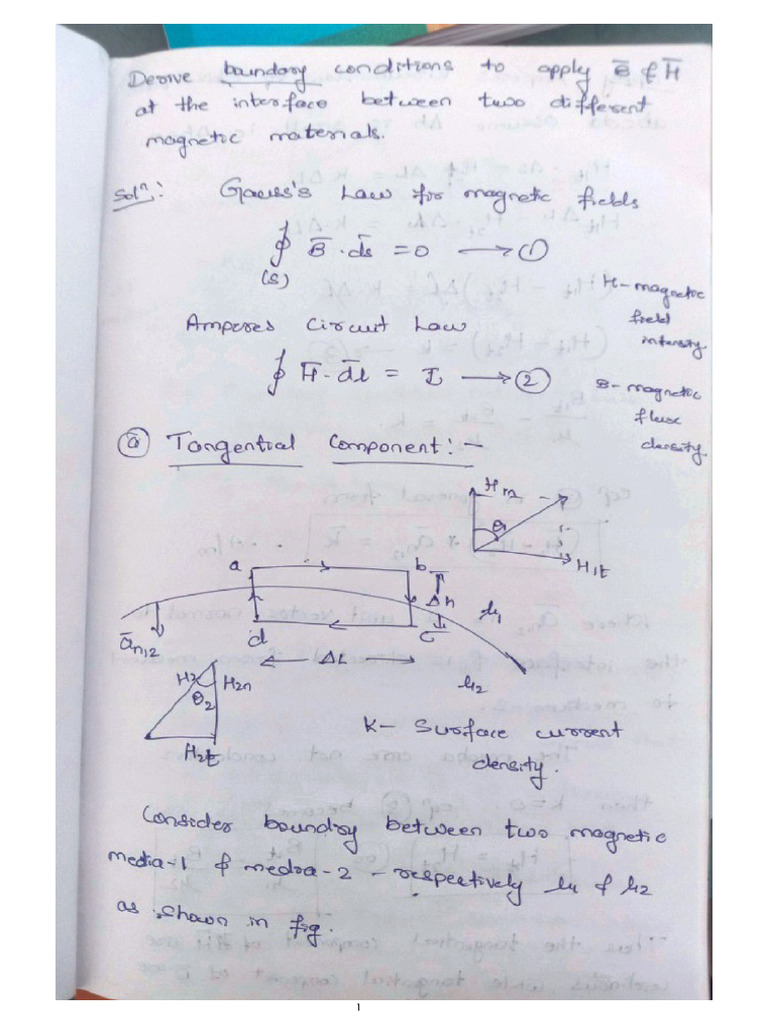 Derive boundary conditions to apply B̄ & H̄
at the interface between two different
magnetic materials.
Solⁿ: Gauss's Law for magnetic fields
∮ B̄ · d̄s = 0 ⟶ ①
(S)
H - magnetic
field
intensity.
Amperes Circuit Law
∮ H̄ · d̄l = I ⟶ ②
B - magnetic
flux
density.
ⓐ Tangential Component: -
θ1
H1t
a b
Δh
μ1
ān12
d c
ΔL
μ2
H2 H2n
θ2
H2t
K - Surface current
density.
Consider boundry between two magnetic
media-1 & media-2 - respectively μ1 & μ2
as shown in fig.
1